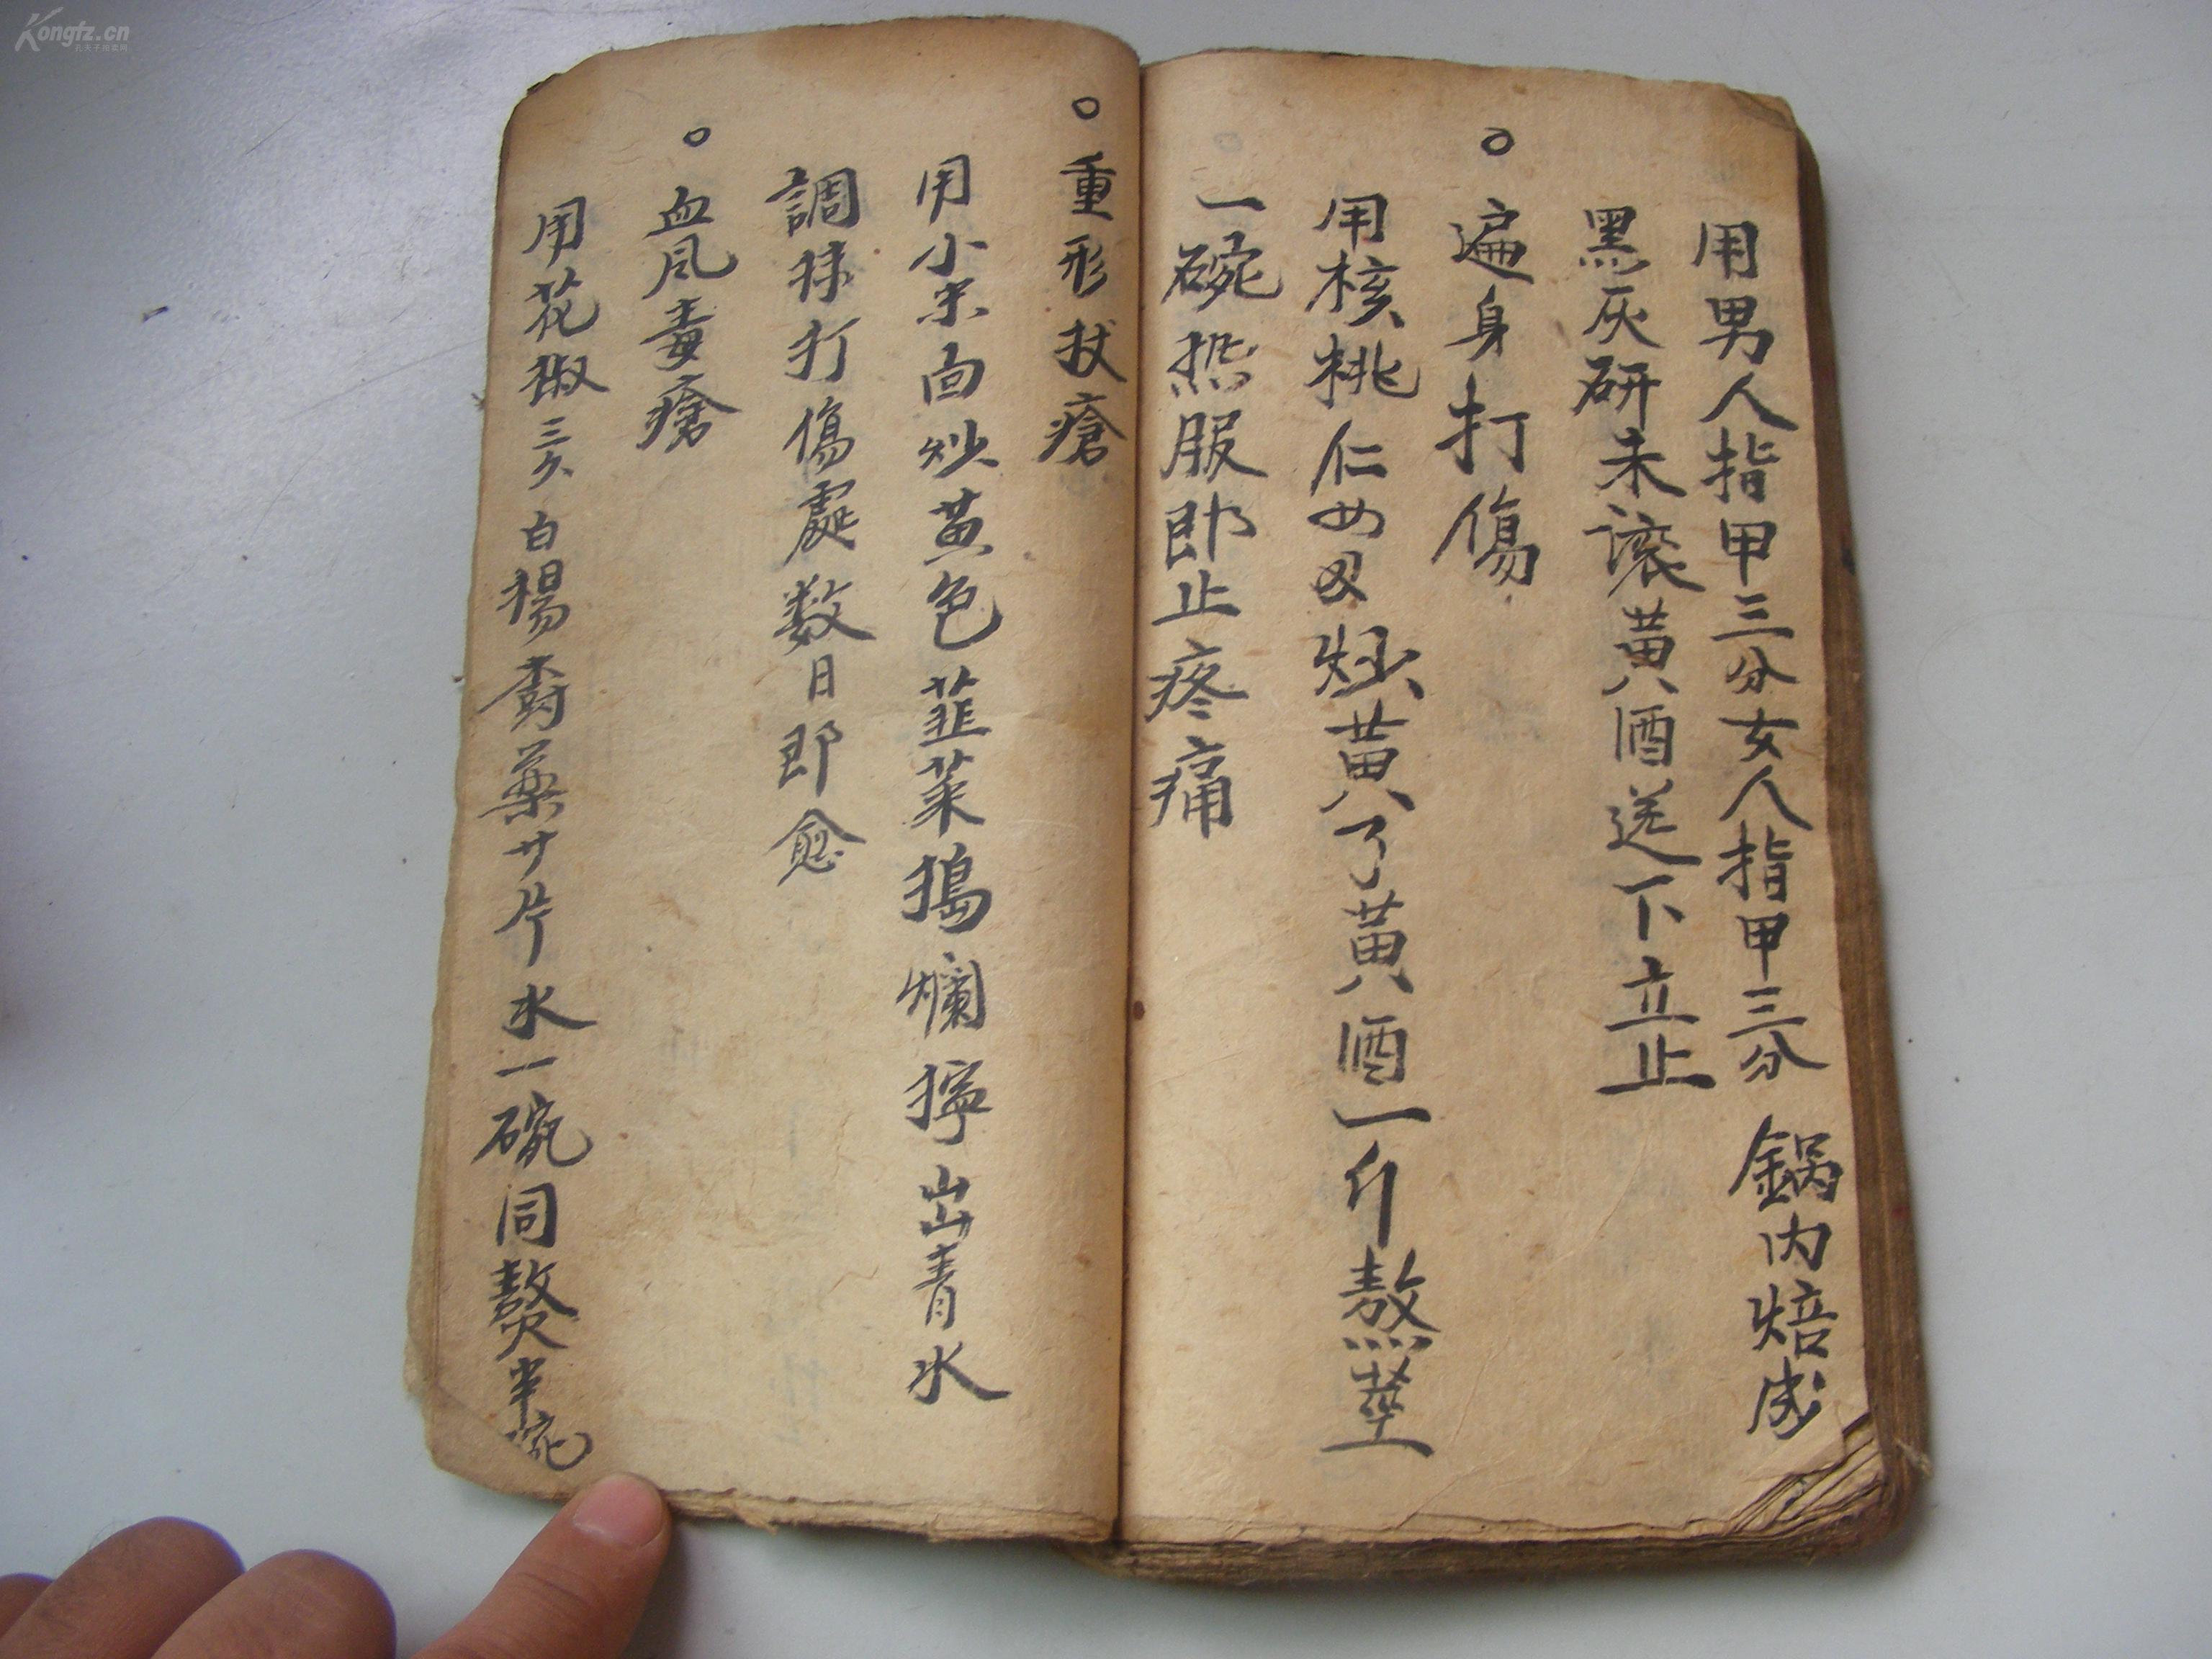 用男人指甲三分女人指甲三分鍋内焙成
黑灰研末滚黃酒送下立止
○遍身打傷
用核桃仁四又炒黃了黃酒一斤熬至
一碗热服即止疼痛
○重形杖瘡
用小米面炒黃色韮菜搗爛擰出青水
調抹打傷處数日即愈
○血风毒瘡
用花椒三
白楊
葉廿片水一碗同熬半碗
Kongfz.cn